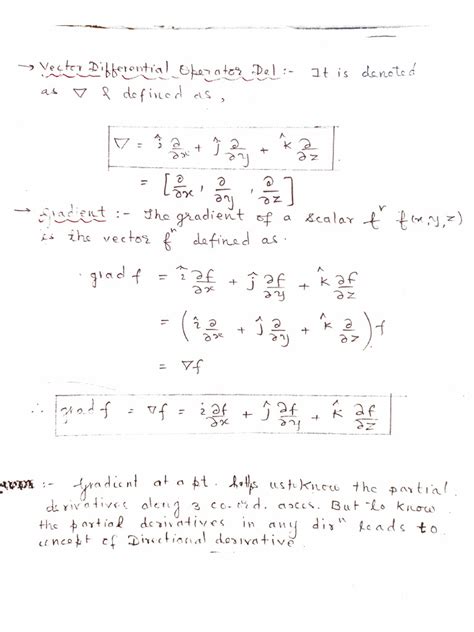 → Vector Differential Operator Del :- It is denoted
as ∇ & defined as,
∇ = î ∂/∂x + ĵ ∂/∂y + k̂ ∂/∂z
= [∂/∂x, ∂/∂y, ∂/∂z]
→ Gradient :- The gradient of a scalar fⁿ f(x,y,z)
is the vector fⁿ defined as.
grad f = î ∂f/∂x + ĵ ∂f/∂y + k̂ ∂f/∂z
= (î ∂/∂x + ĵ ∂/∂y + k̂ ∂/∂z) f
= ∇f
∴ grad f = ∇f = î ∂f/∂x + ĵ ∂f/∂y + k̂ ∂f/∂z
:- Gradient at a pt. helps us to know the partial
derivatives along 3 co.ord. axes. But to know
the partial derivatives in any dirⁿ leads to
concept of Directional derivative.